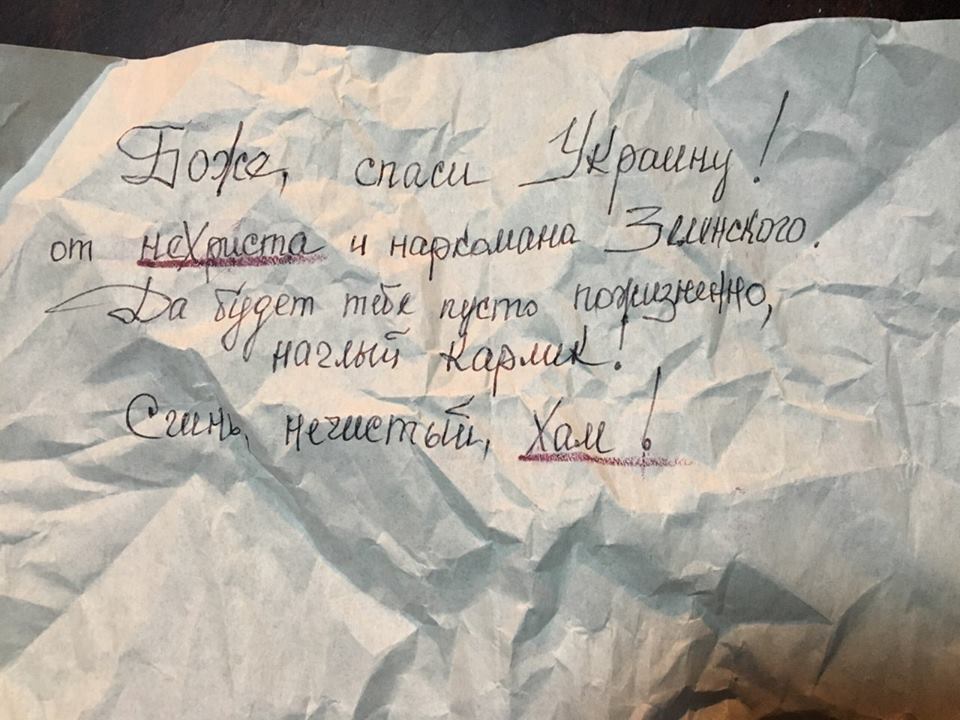 Боже, спаси Украину!
от неХриста и наркомана Зелинского.
Да будет тебе пусто пожизненно,
наглый карлик!
Сгинь, нечистый, Хам!